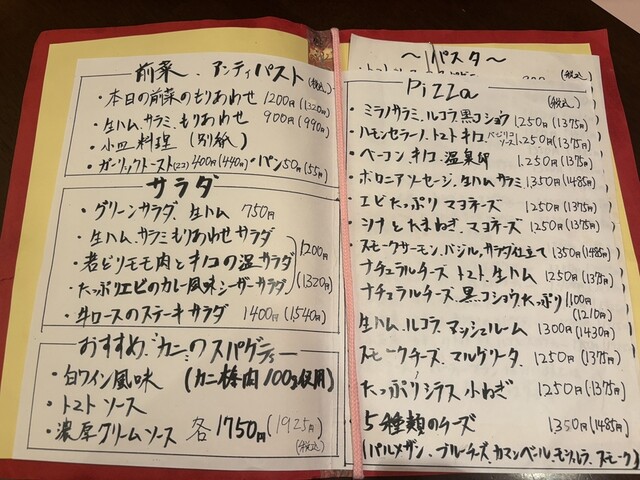 前菜、アンティパスト (税込)
・本日の前菜のもりあわせ 1200円(1320円)
・生ハム、サラミ、もりあわせ 900円(990円)
・小皿料理 (別紙)
・ガーリックトースト(2コ)400円(440円)・パン50円(55円)
サラダ
・グリーンサラダ、生ハム 750円
・生ハム、サラミもりあわせサラダ
・若どりモモ肉とキノコの温サラダ 1,200円
・たっぷりエビのカレー風味シーザーサラダ (1320円)
・牛ロースのステーキサラダ 1400円(1,540円)
おすすめ"カニ"のスパゲティー
・白ワイン風味 (カニ棒肉100g使用)
・トマトソース
・濃厚クリームソース 各1750円(1925円)
(税込)
〜パスタ〜
(税込)
Pizza
(税込)
ミラノサラミ、ルコラ、黒コショウ 1250円(1375円)
ハモンセラーノ、トマト キノコ、バジリコソース 1,250円(1375円)
ベーコン、キノコ、温泉卵 1.250円(1375円)
ボロニアソーセージ、生ハム、サラミ 1350円(1485円)
エビたっぷり マヨネーズ 1250円(1375円)
シナとたまねぎ、マヨネーズ 1250円(1375円)
スモークサーモン、バジル、サラダ仕立て 1350円(1485円)
ナチュラルチーズ トマト、生ハム 1250円(1375円)
ナチュラルチーズ、黒コショウたっぷり 1100円
(1210円)
生ハム、ルコラ、マッシュルーム 1300円(1430円)
スモークチーズ、マルゲリータ 1250円(1375円)
たっぷりシラス 小ねぎ 1250円(1375円)
5種類のチーズ 1350円(1485円)
(パルメザン、ブルーチーズ、カマンベール、モッツァレラ、スモーク)